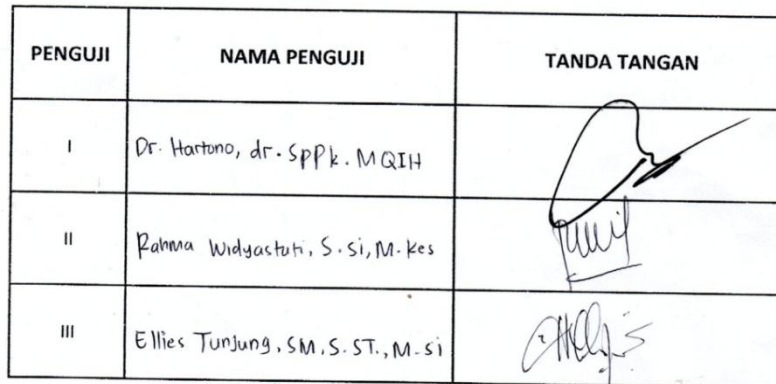 PENGUJI NAMA PENGUJI TANDA TANGAN
I Dr. Hartono, dr. SpPk. MQIH
II Rahma Widyastuti, S.si, M.kes
III Ellies Tunjung, SM, S.ST., M.si